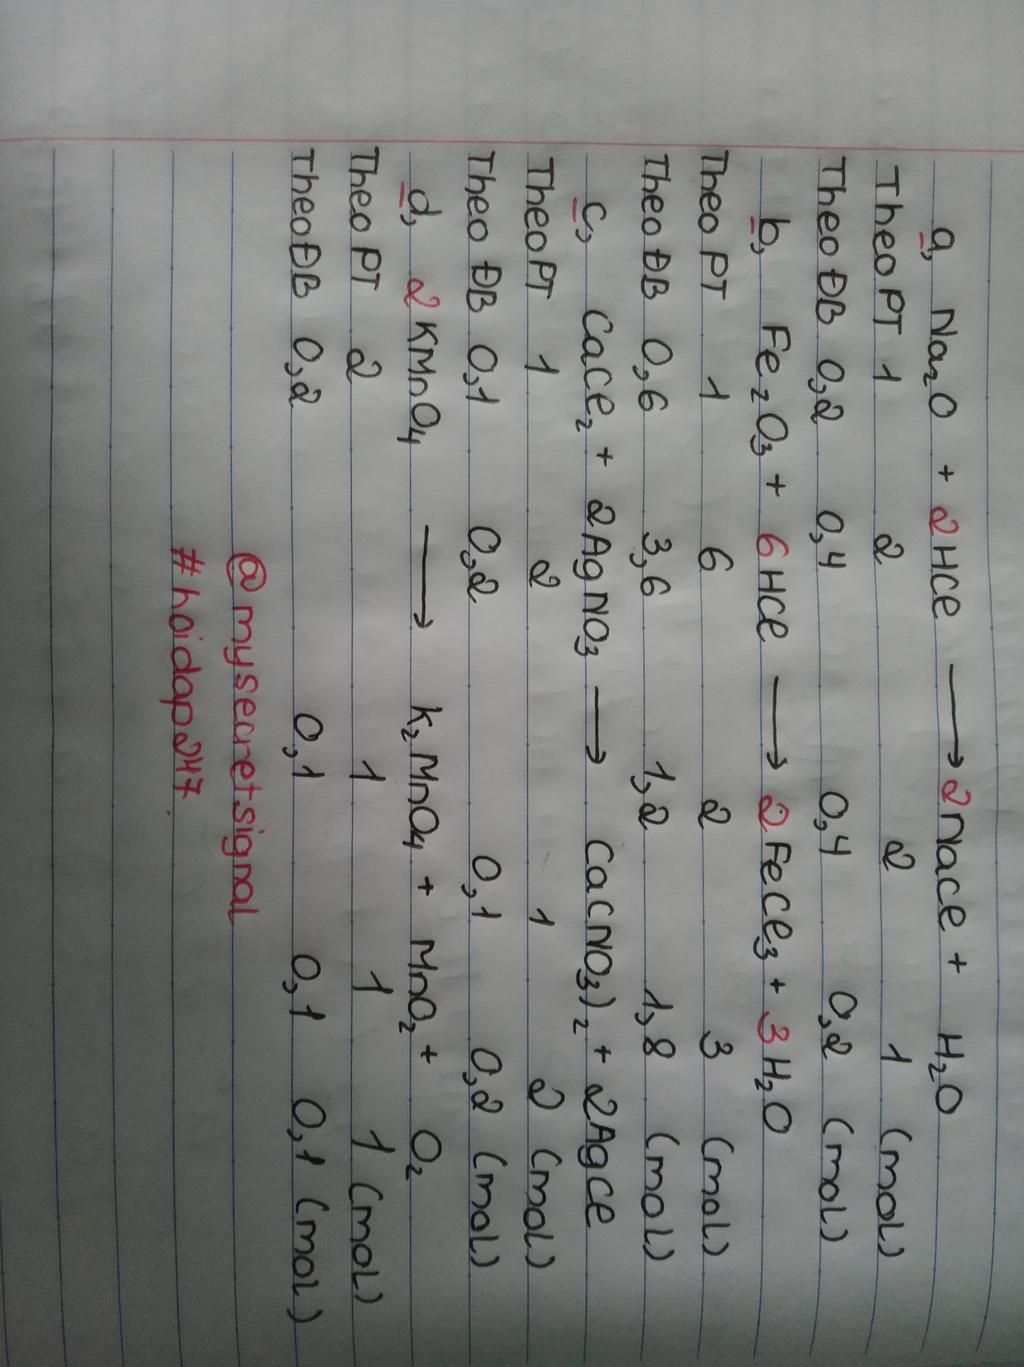 a, Na₂O + 2HCl ⟶ 2NaCl + H₂O
Theo PT 1 2 2 1 (mol)
Theo ĐB 0,2 0,4 0,4 0,2 (mol)
b, Fe₂O₃ + 6HCl ⟶ 2FeCl₃ + 3H₂O
Theo PT 1 6 2 3 (mol)
Theo ĐB 0,6 3,6 1,2 1,8 (mol)
c, CaCl₂ + 2AgNO₃ ⟶ Ca(NO₃)₂ + 2AgCl
Theo PT 1 2 1 2 (mol)
Theo ĐB 0,1 0,2 0,1 0,2 (mol)
d, 2KMnO₄ ⟶ K₂MnO₄ + MnO₂ + O₂
Theo PT 2 1 1 1 (mol)
Theo ĐB 0,2 0,1 0,1 0,1 (mol)
@mysecretsignal
#hoidap247.